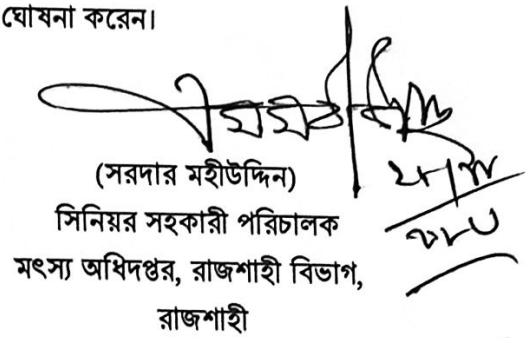 ঘোষনা করেন।
(সরদার মহীউদ্দিন)
সিনিয়র সহকারী পরিচালক
মৎস্য অধিদপ্তর, রাজশাহী বিভাগ,
রাজশাহী